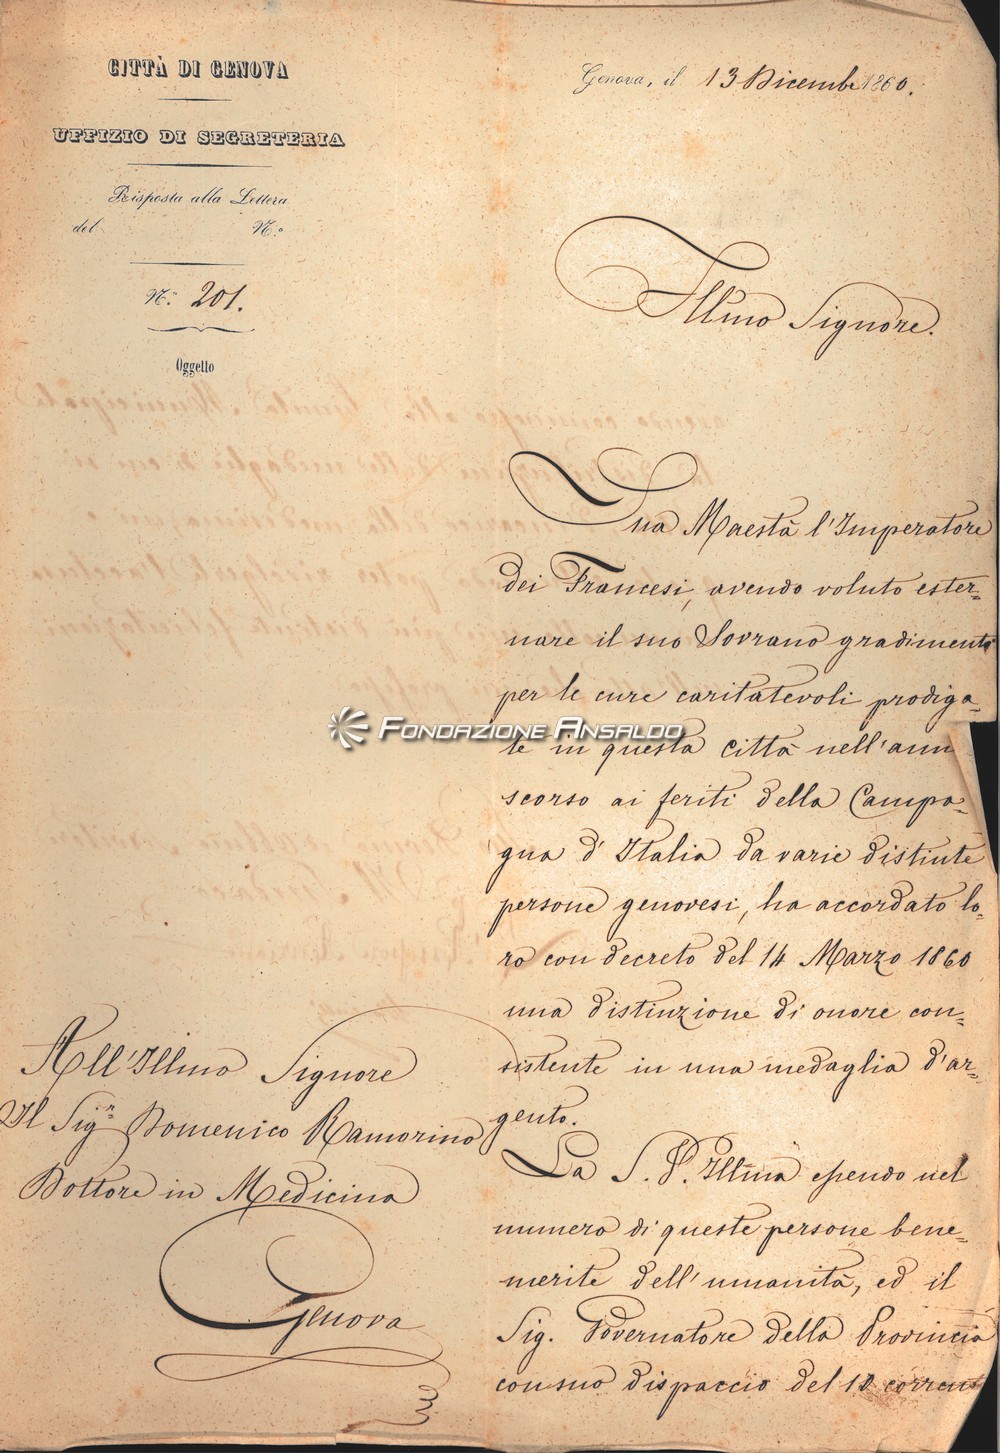 CITTÀ DI GENOVA
UFFIZIO DI SEGRETERIA
Risposta alla Lettera
del N.o
N.o 201.
Oggetto
Genova, il 13 Dicembre 1860.
Illmo Signore.
Sua Maestà l'Imperatore
dei Francesi, avendo voluto ester-
nare il suo Sovrano gradimento
per le cure caritatevoli prodiga-
te in questa città nell'ann
scorso ai feriti della Campa-
gna d'Italia da varie distinte
persone genovesi, ha accordato lo-
ro con decreto del 14 Marzo 1860
una distinzione di onore con-
sistente in una medaglia d'ar-
gento.
La S. V. Illma essendo nel
numero di queste persone bene-
merite dell'umanità, ed il
Sig. Governatore della Provincia
con suo dispaccio del 10 corrent
All'Illmo Signore
Il Sigr Domenico Ramorino
Dottore in Medicina
Genova
FONDAZIONE ANSALDO